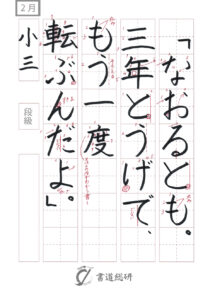 「なおるとも。
三年とうげで、
もう一度
転ぶんだよ。」
2月
小三
段級
書道総研